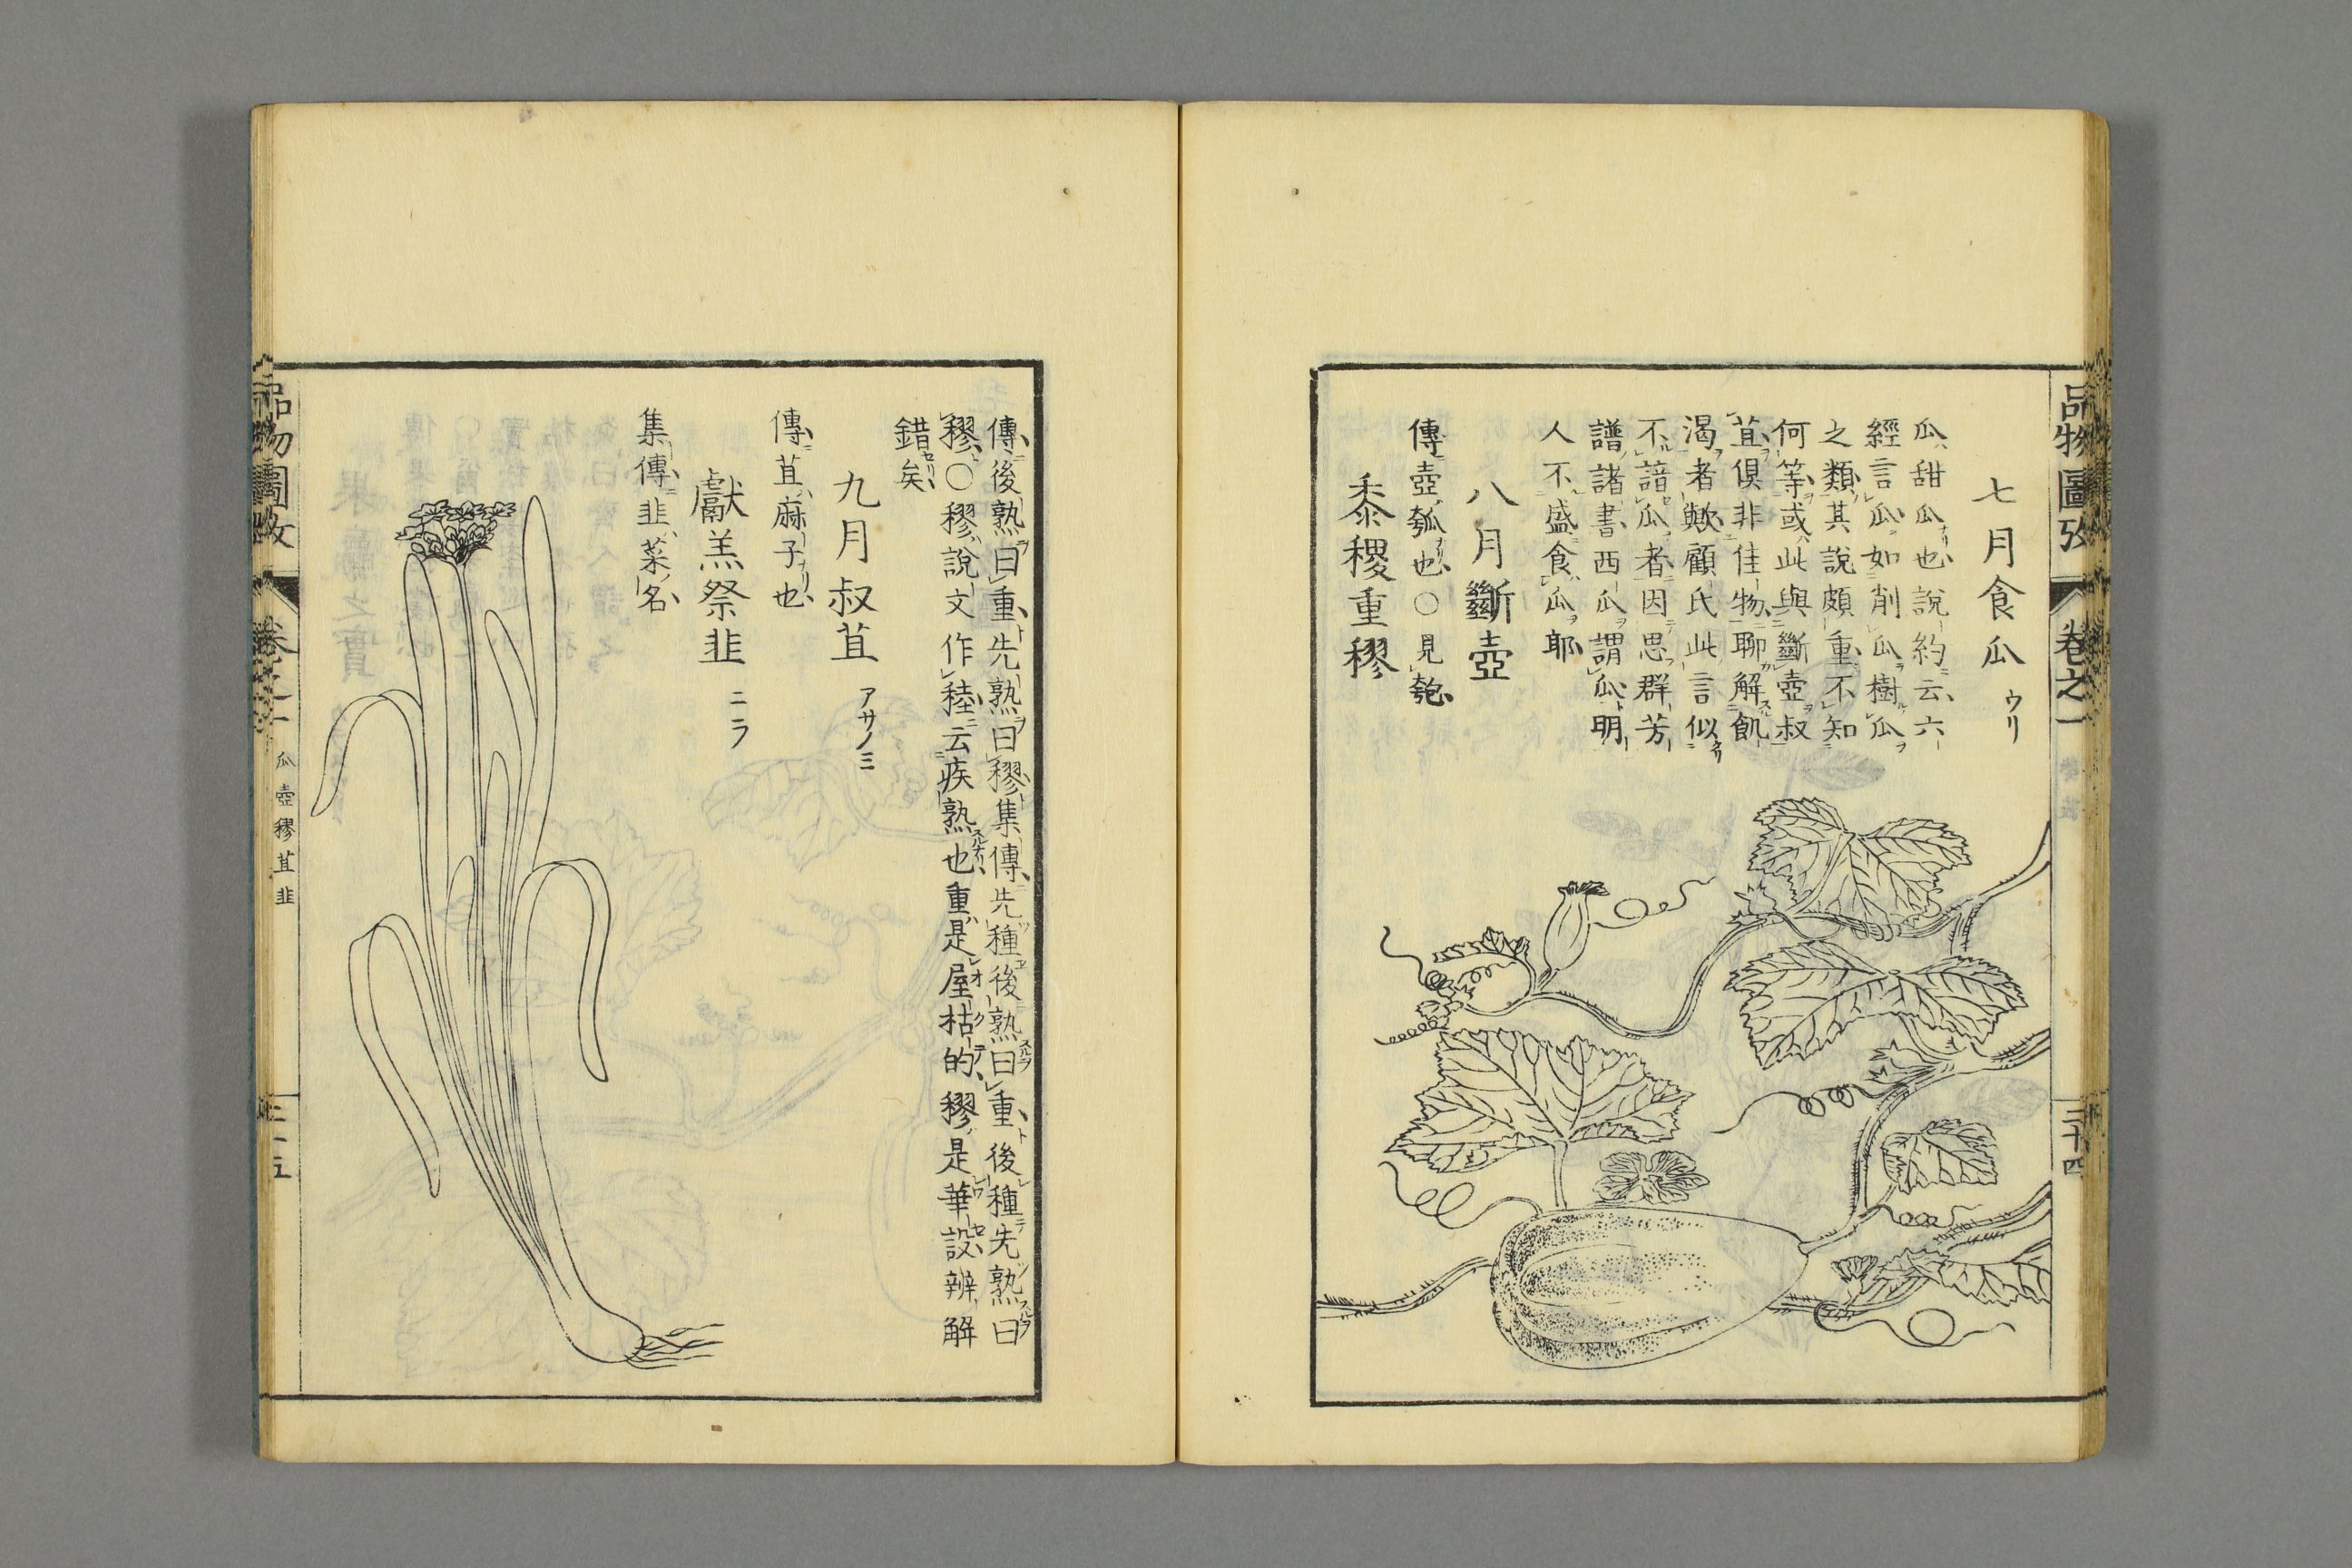 品物圖攷 卷之一 三十四
七月食瓜 ウリ
瓜甜瓜也說約云六
經言瓜如削瓜樹瓜
之類其說頗重不知
何等或此與斷壺叔
苴俱非佳物聊解飢
渴者歟顧氏此言似
不諳瓜者因思群芳
譜諸書西瓜謂瓜明
人不盛食瓜耶
八月斷壺
傳壺瓠也○見匏
黍稷重穋
傳後熟曰重先熟曰穋集傳先種後熟曰重後種先熟曰
穋○穋說文作稑云疾熟也重是屋枯的穋是華設辨解
錯矣
九月叔苴 アサノミ
傳苴麻子也
獻羔祭韭 ニラ
集傳韭菜名
品物圖攷 卷之一 瓜 壺 穋 苴 韭 三十五